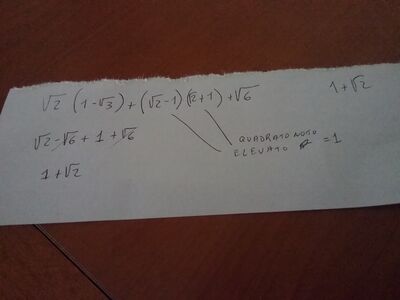 √2 (1-√3) + (√2-1)(√2+1) + √6
1+√2
√2 - √6 + 1 + √6
QUADRATO NOTO
ELEVATO = 1
1+√2